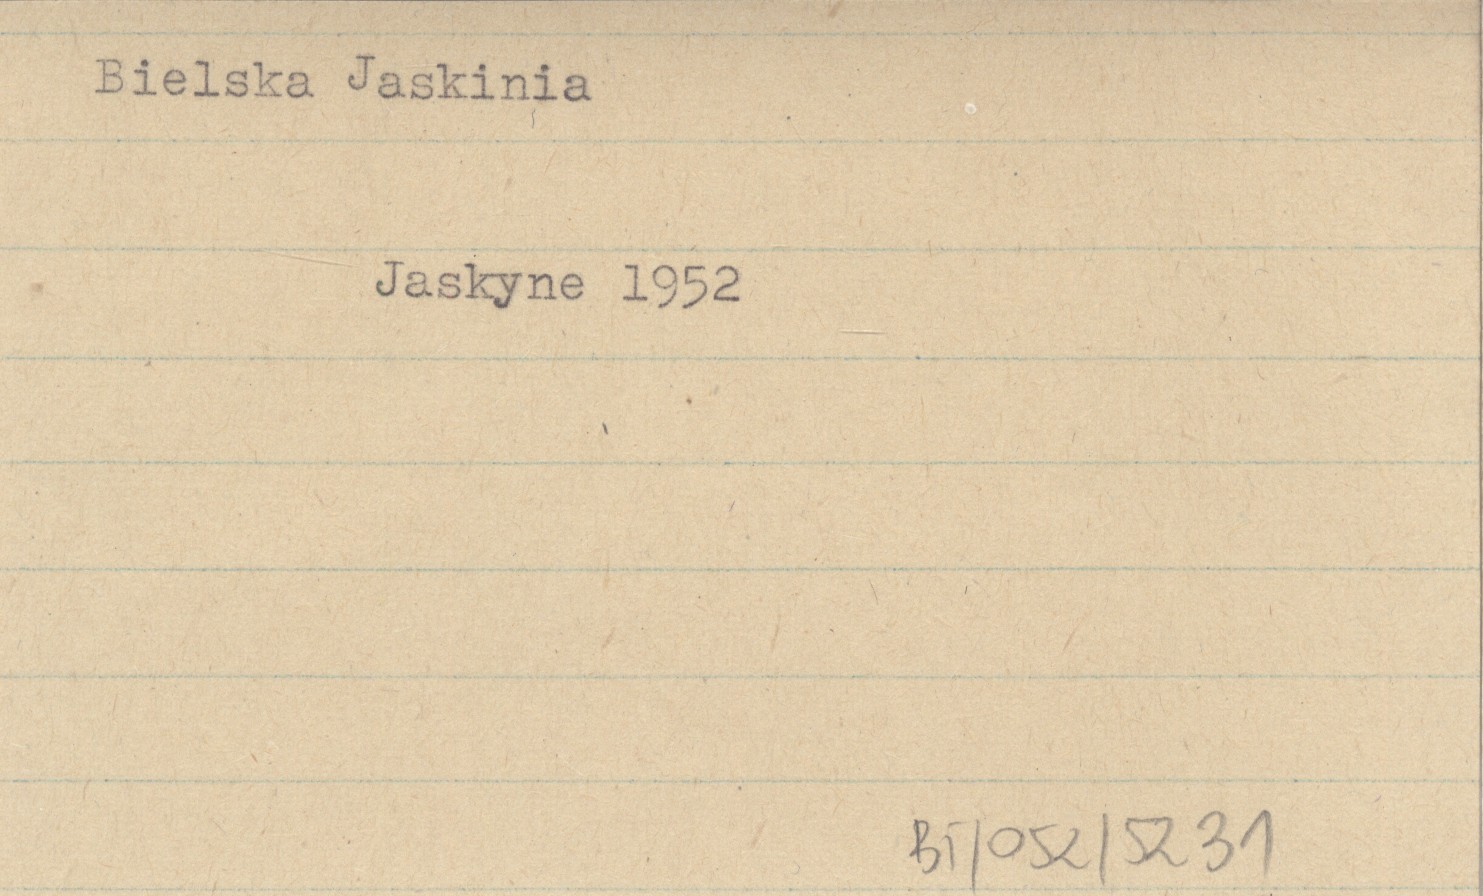 Bielska Jaskinia
Jaskyne 1952
BT/052/5231